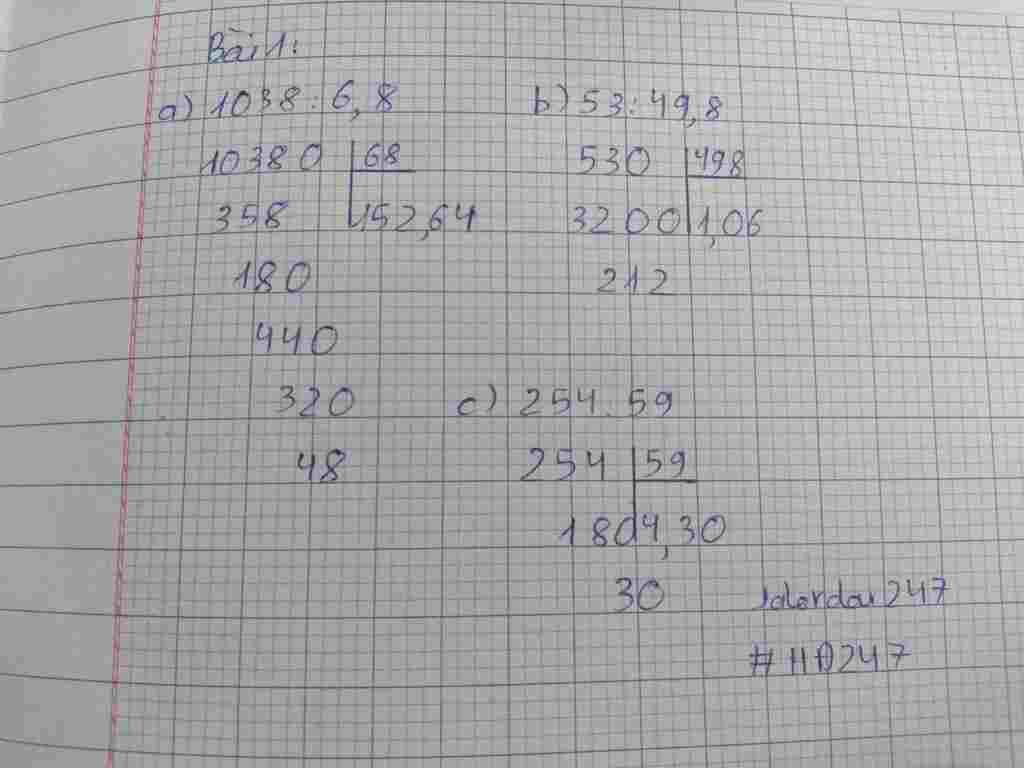 Bài 1:
a) 1038 : 6,8
10380 68
358 152,64
180
440
320
48
b) 53 : 49,8
530 498
3200 1,06
212
c) 254 : 59
254 59
180 4,30
30
#HD247